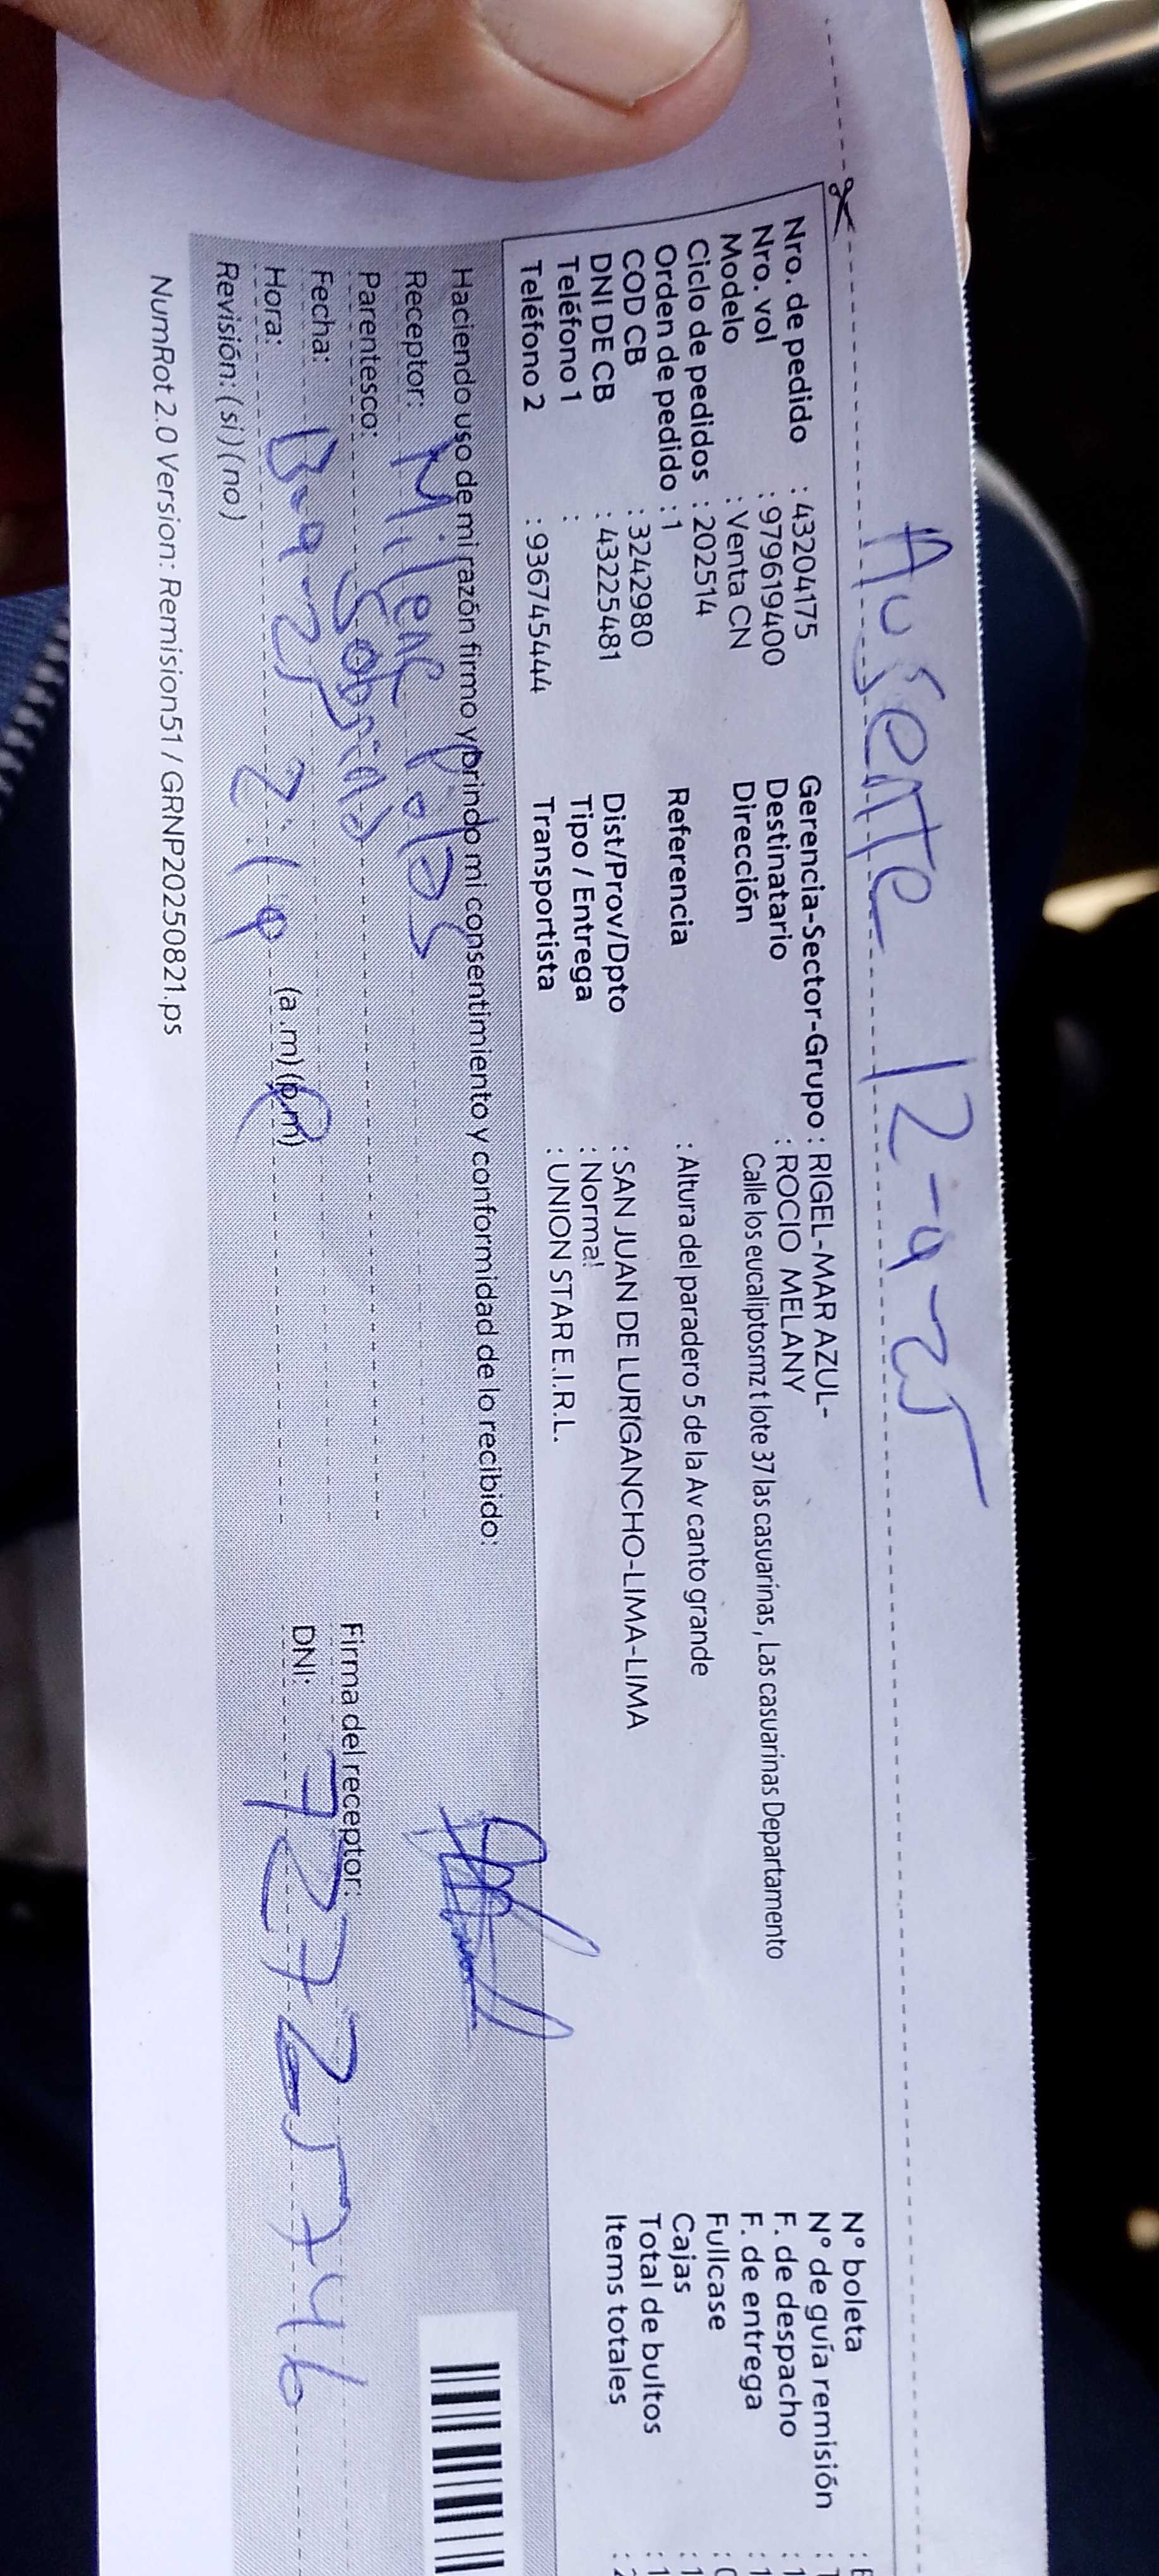 Ausente 12-9-25
Nro. de pedido : 43204175
Nro. vol : 979619400
Modelo : Venta CN
Ciclo de pedidos : 202514
Orden de pedido : 1
COD CB : 3242980
DNI DE CB : 43225481
Teléfono 1 :
Teléfono 2 : 936745444
Gerencia-Sector-Grupo : RIGEL-MAR AZUL-
Destinatario : ROCIO MELANY
Dirección Calle los eucaliptosmz t lote 37 las casuarinas , Las casuarinas Departamento
Referencia : Altura del paradero 5 de la Av canto grande
Dist/Prov/Dpto : SAN JUAN DE LURIGANCHO-LIMA-LIMA
Tipo / Entrega : Normal
Transportista : UNION STAR E.I.R.L.
N° boleta :
N° de guía remisión :
F. de despacho : 1
F. de entrega : 1
Fullcase :
Cajas : 1
Total de bultos : 1
Items totales :
Haciendo uso de mi razón firmo y brindo mi consentimiento y conformidad de lo recibido:
Receptor: Milena
Parentesco: Sobrina
Fecha: 13-9-25
Hora: 2:19 (a.m) (p.m)
Revisión: (si) (no)
Firma del receptor:
DNI:
NumRot 2.0 Version: Remision51 / GRNP20250821.ps